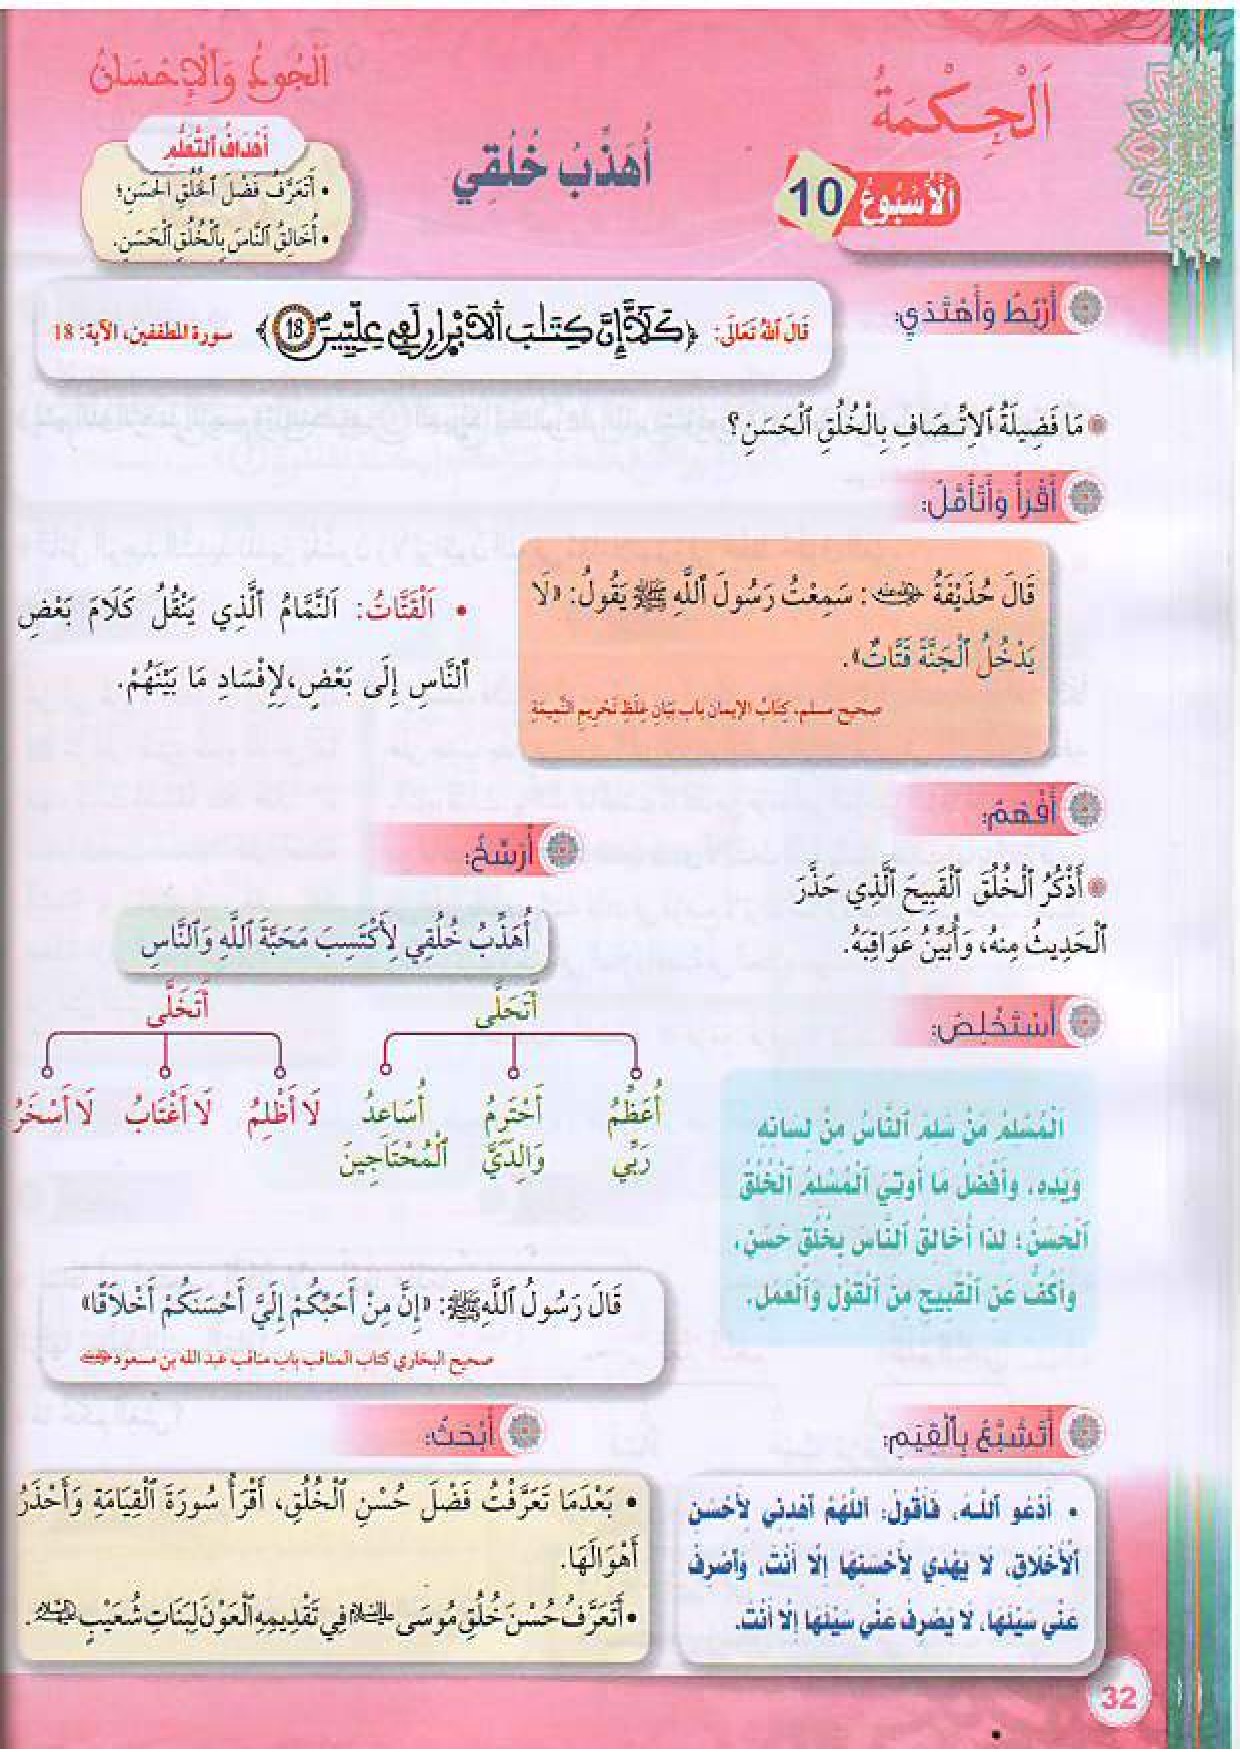 اَلْحِكْمَةُ
اَلْجُودُ وَالْإِحْسَانُ
اَلْأُسْبُوعُ 10
أُهَذِّبُ خُلُقِي
أَهْدَافُ ٱلتَّعَلُّمِ
• أَتَعَرَّفُ فَضْلَ ٱلْخُلُقِ الْحَسَنِ؛
• أُخَالِقُ ٱلنَّاسَ بِالْخُلُقِ ٱلْحَسَنِ.
أَرْبِطُ وَأَهْتَدِي:
قَالَ ٱللَّهُ تَعَالَى: ﴿كَلَّا إِنَّ كِتَٰبَ ٱلَابْرِارِ لَفِے عِلِّيِّينَ 18﴾ سورة المطففين، الآية: 18
مَا فَضِيلَةُ ٱلِاتِّصَافِ بِالْخُلُقِ ٱلْحَسَنِ؟
أَقْرَأُ وَأَتَأَمَّلُ:
قَالَ حُذَيْفَةُ رضي الله عنه: سَمِعْتُ رَسُولَ ٱللَّهِ ﷺ يَقُولُ: «لَا
يَدْخُلُ ٱلْجَنَّةَ قَتَّاتٌ».
صحيح مسلم، كتابُ الإيمان باب بيَان غِلَظِ تَحْرِيمِ النَّمِيمَة
• اَلْقَتَّاتُ: اَلنَّمَّامُ ٱلَّذِي يَنْقُلُ كَلَامَ بَعْضِ
ٱلنَّاسِ إِلَى بَعْضٍ، لِإِفْسَادِ مَا بَيْنَهُمْ.
أَفْهَمُ:
أَذْكُرُ ٱلْخُلُقَ ٱلْقَبِيحَ ٱلَّذِي حَذَّرَ
ٱلْحَدِيثُ مِنْهُ، وَأُبَيِّنُ عَوَاقِبَهُ.
أُرَسِّخُ:
أُهَذِّبُ خُلُقِي لِأَكْتَسِبَ مَحَبَّةَ ٱللَّهِ وَٱلنَّاسِ
أَتَحَلَّى
أَتَخَلَّى
أُعَظِّمُ رَبِّي
أَحْتَرِمُ وَالِدَيَّ
أُسَاعِدُ ٱلْمُحْتَاجِينَ
لَا أَظْلِمُ
لَا أَغْتَابُ
لَا أَسْخَرُ
أَسْتَخْلِصُ:
اَلْمُسْلِمُ مَنْ سَلِمَ ٱلنَّاسُ مِنْ لِسَانِهِ
وَيَدِهِ، وَأَفْضَلُ مَا أُوتِيَ ٱلْمُسْلِمُ ٱلْخُلُقُ
ٱلْحَسَنُ؛ لِذَا أُخَالِقُ ٱلنَّاسَ بِخُلُقٍ حَسَنٍ،
وَأَكُفُّ عَنِ ٱلْقَبِيحِ مِنَ ٱلْقَوْلِ وَٱلْعَمَلِ.
قَالَ رَسُولُ ٱللَّهِ ﷺ: «إِنَّ مِنْ أَحَبِّكُمْ إِلَيَّ أَحْسَنَكُمْ أَخْلَاقًا»
صحيح البخاري كتاب المناقب باب مناقب عبد الله بن مسعود رضي الله عنه
أَتَشَبَّعُ بِٱلْقِيَمِ:
• أَدْعُو ٱللَّهَ، فَأَقُولُ: اَللَّهُمَّ ٱهْدِنِي لِأَحْسَنِ
ٱلْأَخْلَاقِ، لَا يَهْدِي لِأَحْسَنِهَا إِلَّا أَنْتَ، وَٱصْرِفْ
عَنِّي سَيِّئَهَا، لَا يَصْرِفُ عَنِّي سَيِّئَهَا إِلَّا أَنْتَ.
أَبْحَثُ:
• بَعْدَمَا تَعَرَّفْتُ فَضْلَ حُسْنِ ٱلْخُلُقِ، أَقْرَأُ سُورَةَ ٱلْقِيَامَةِ وَأَحْذَرُ
أَهْوَالَهَا.
• أَتَعَرَّفُ حُسْنَ خُلُقِ مُوسَى عليه السلام فِي تَقْدِيمِهِ ٱلْعَوْنَ لِبَنَاتِ شُعَيْبٍ عليه السلام.
32